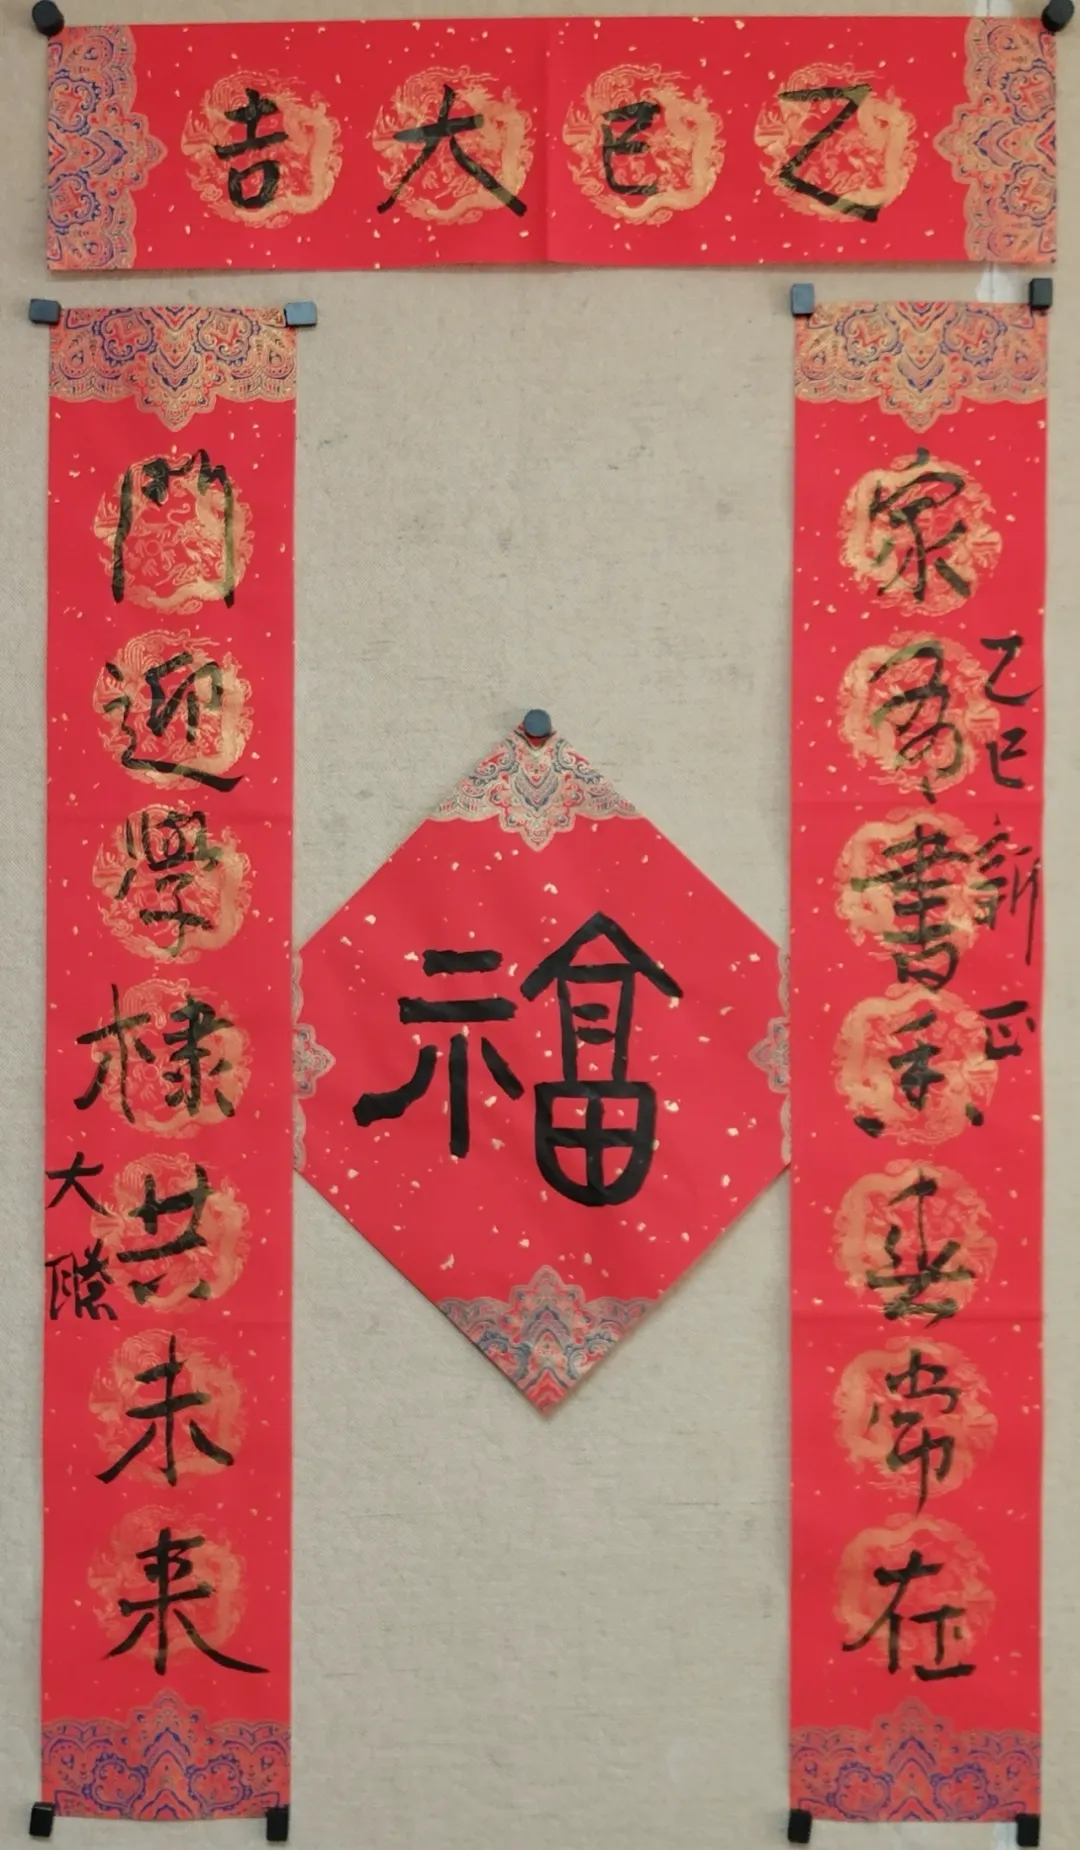 乙巳大吉
家書常在
乙巳新正
門迎學棣共未來
大
福